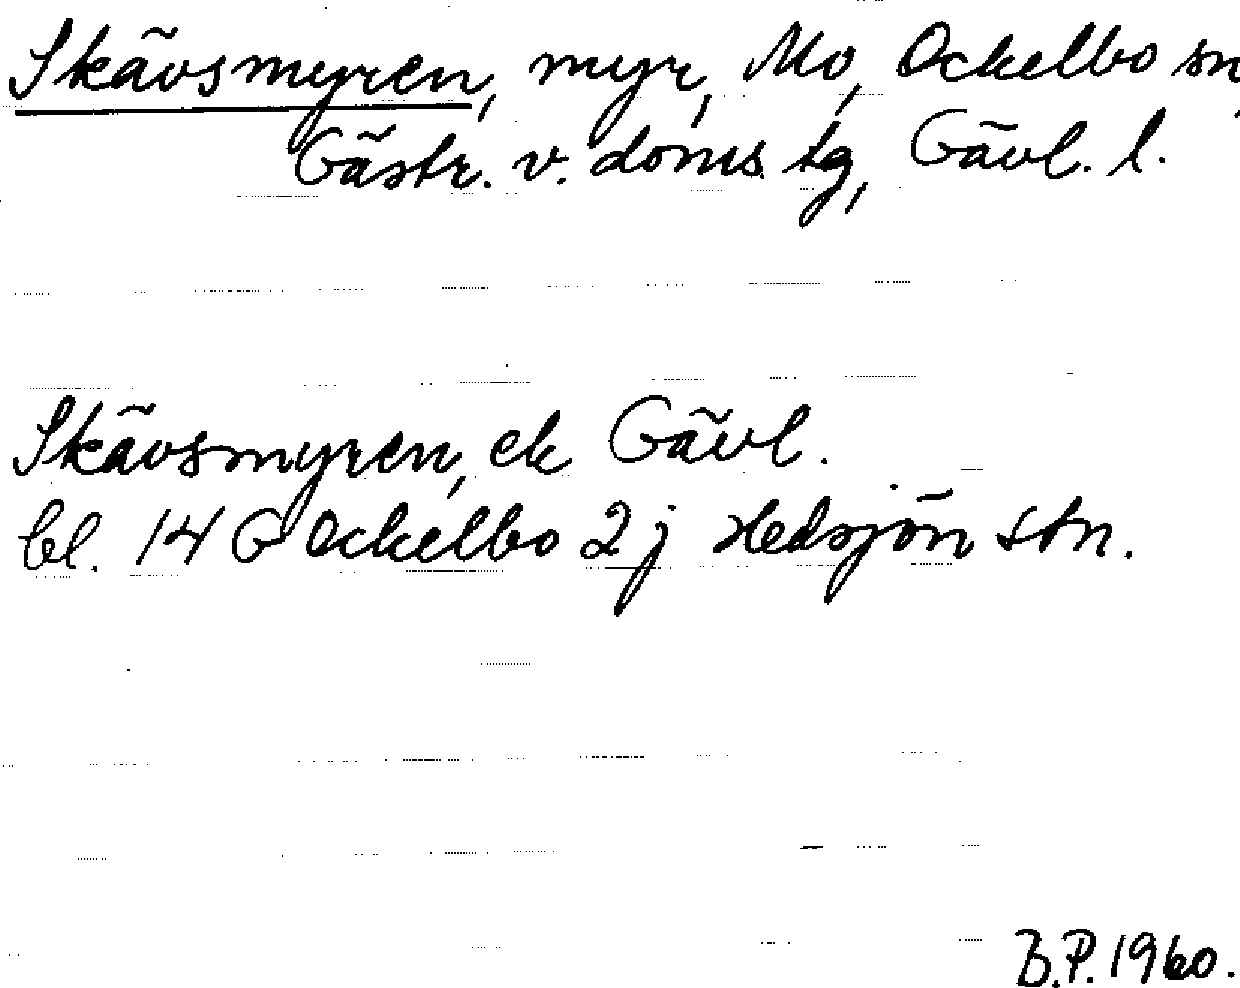 Skävsmyren, myr, Mo, Ockelbo sn,
Gästr. v. doms. tg, Gävl. l.
Skävsmyren, ek Gävl.
bl. 14 G Ockelbo 2j Hedsjön stn.
B.P. 1960.